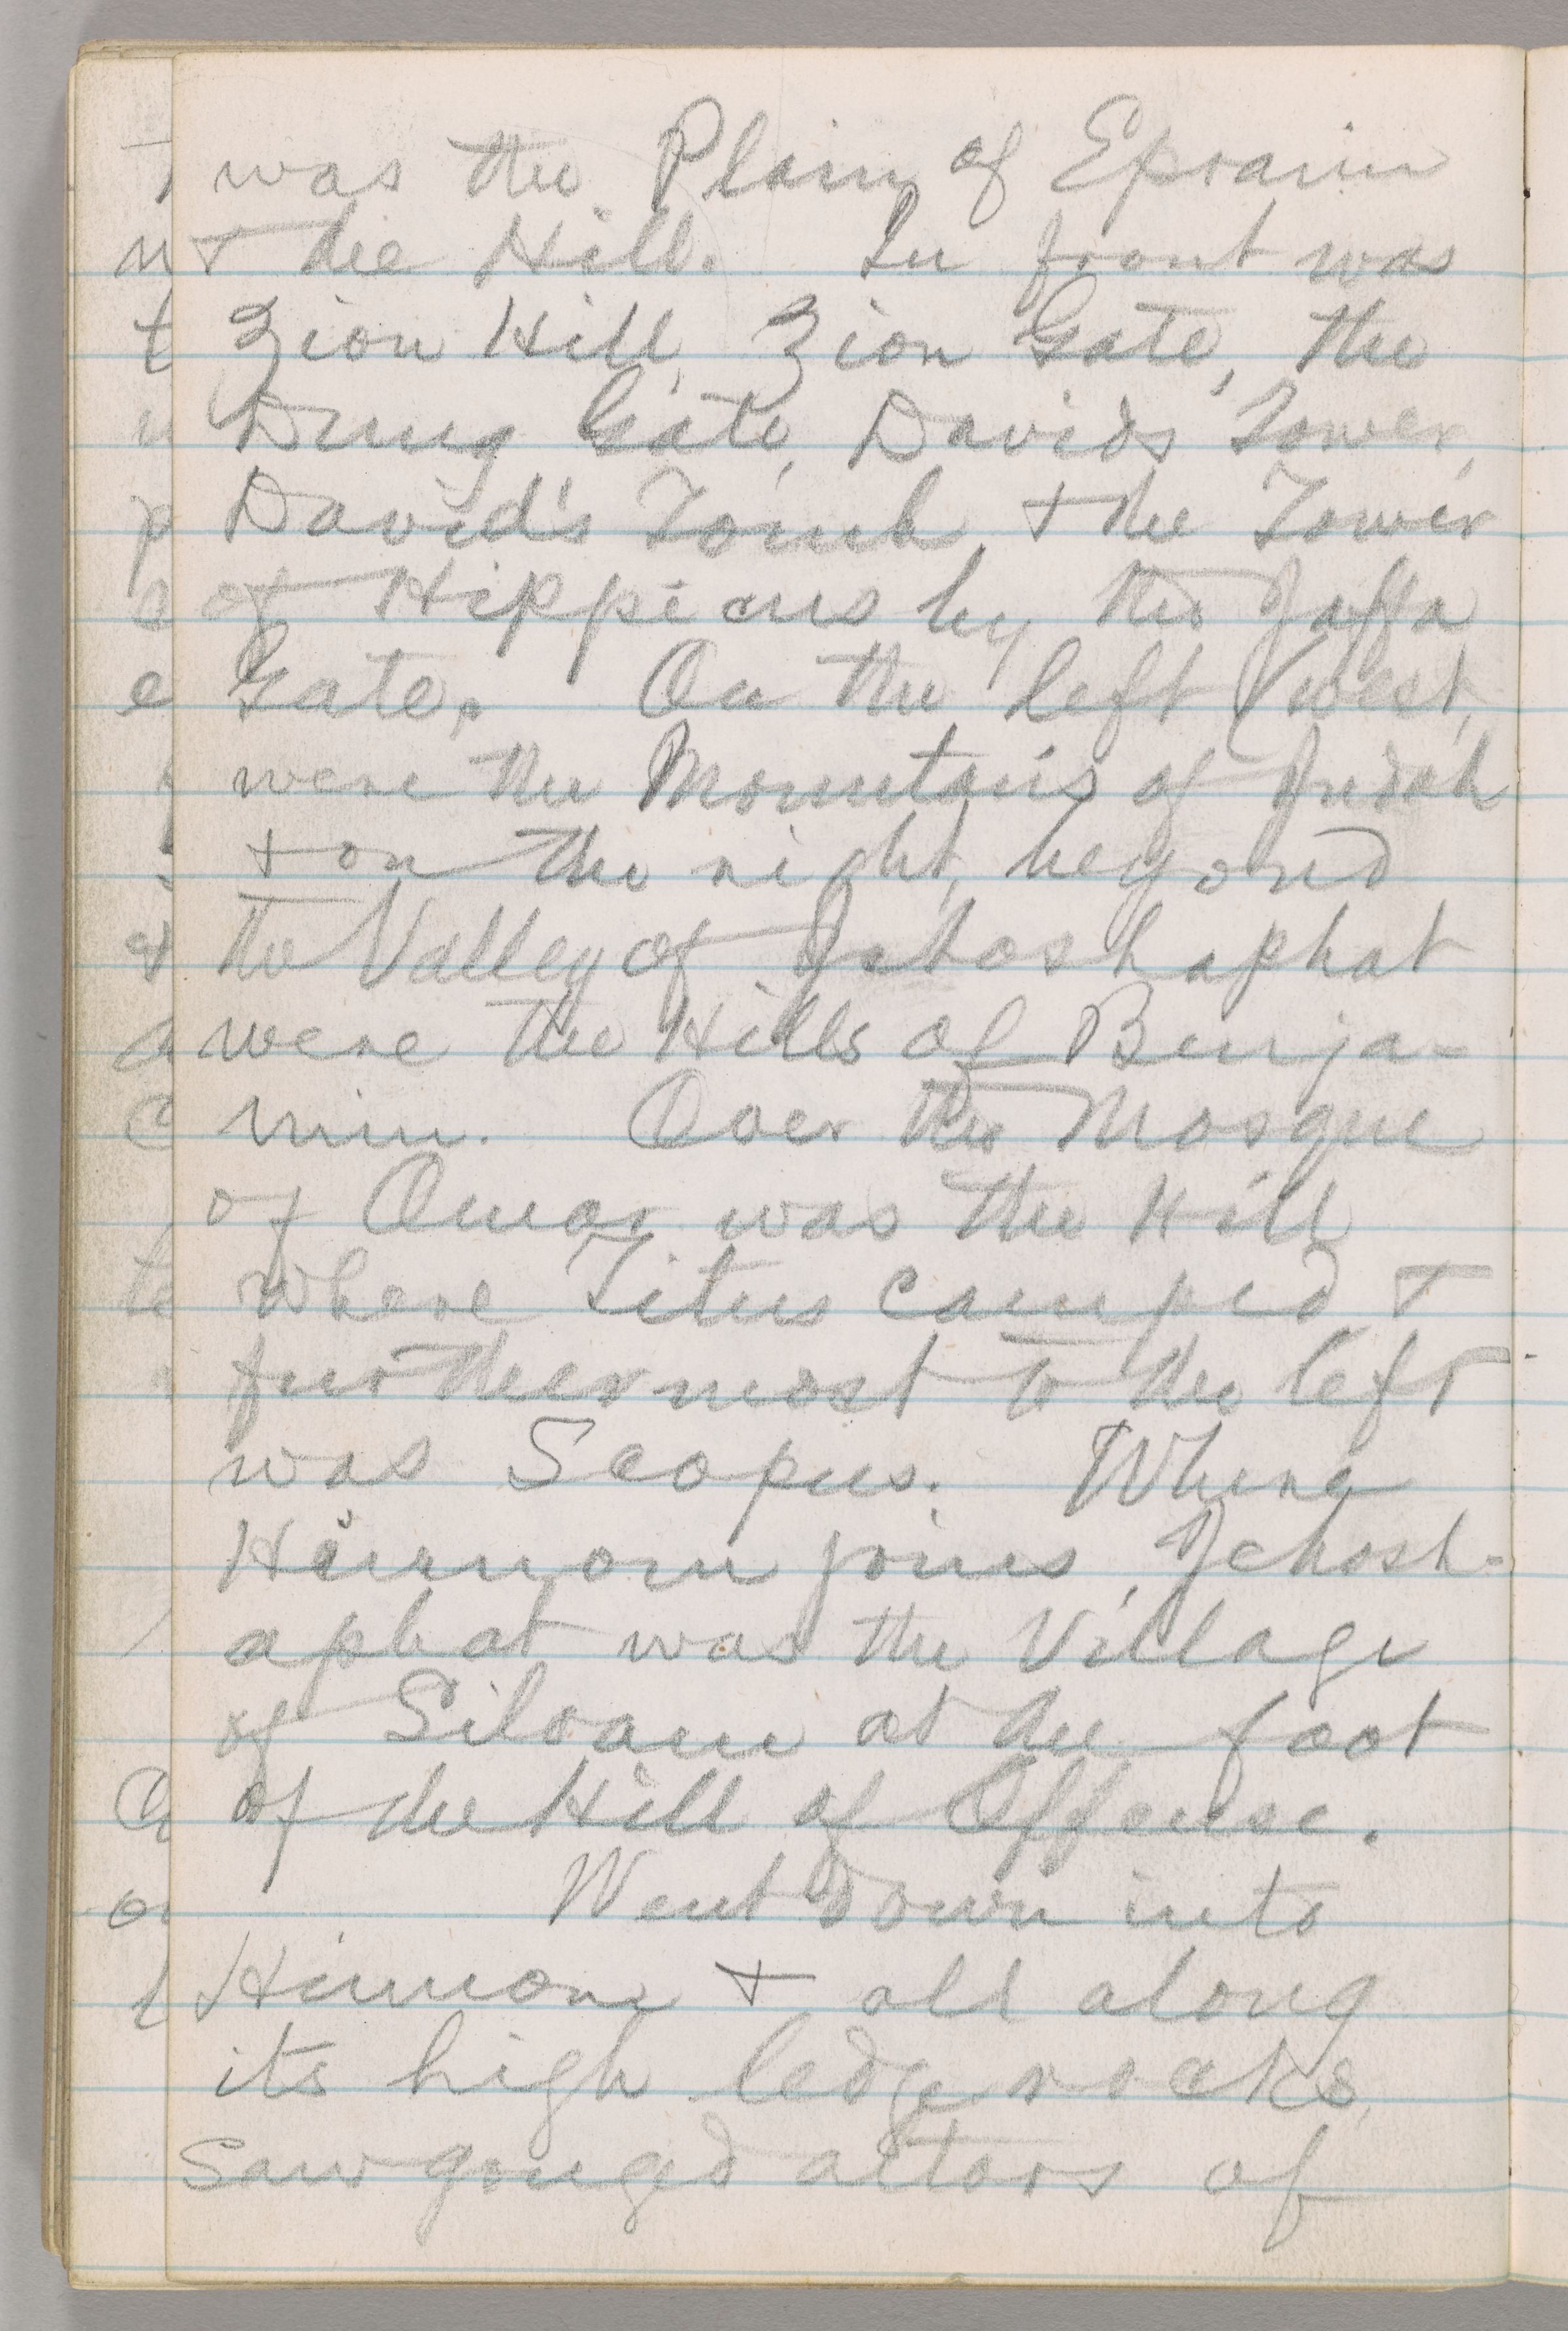 was the Plain of Epraim
& the Hill. In front was
Zion Hill, Zion Gate, the
Dung Gate, Davids Tower,
David's Tomb, & the Tower
of Hippicus by the Jaffa
Gate. On the left (west,
were the Mountains of Judah
& on the right, beyond
the Valley of Jehoshaphat
were the Hills of Benja-
min. Over the Mosque
of Omar was the Hill
where Titus camped &
furthermost to the left
was Scopus. Where
Hinnom joins, Jehosh-
aphat was the Village
of Siloam at the foot
of the Hill of Offense.
Went down into
Hinnom & all along
its high ledge rocks,
saw gouged altars of